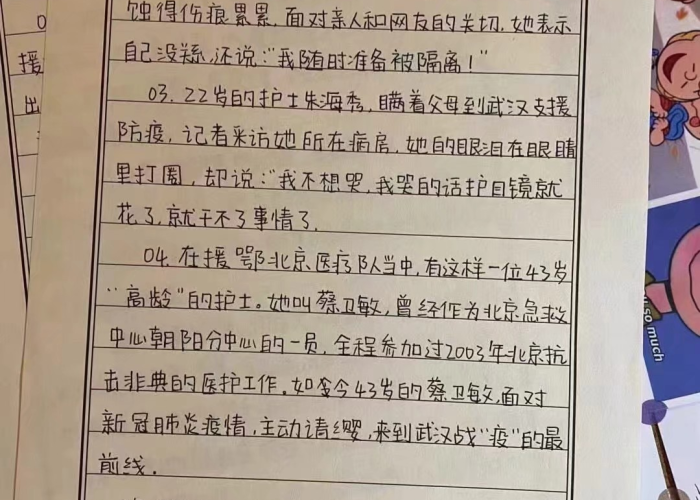 蚀得伤痕累累，面对亲人和网友的关切，她表示
自己没关系，还说："我随时准备被隔离！"
03. 22岁的护士朱海秀，瞒着父母到武汉支援
防疫，记者采访她所在病房，她的眼泪在眼睛
里打圈，却说："我不想哭，我哭的话护目镜就
花了，就干不了事情了。
04. 在援鄂北京医疗队当中，有这样一位43岁
"高龄"的护士。她叫蔡卫敏，曾经作为北京急救
中心朝阳分中心的一员，全程参加过2003年北京抗
击非典的医护工作。如今今43岁的蔡卫敏，面对
新冠肺炎疫情，主动请缨，来到武汉战"疫"的最
前线。
0
援
出
so much